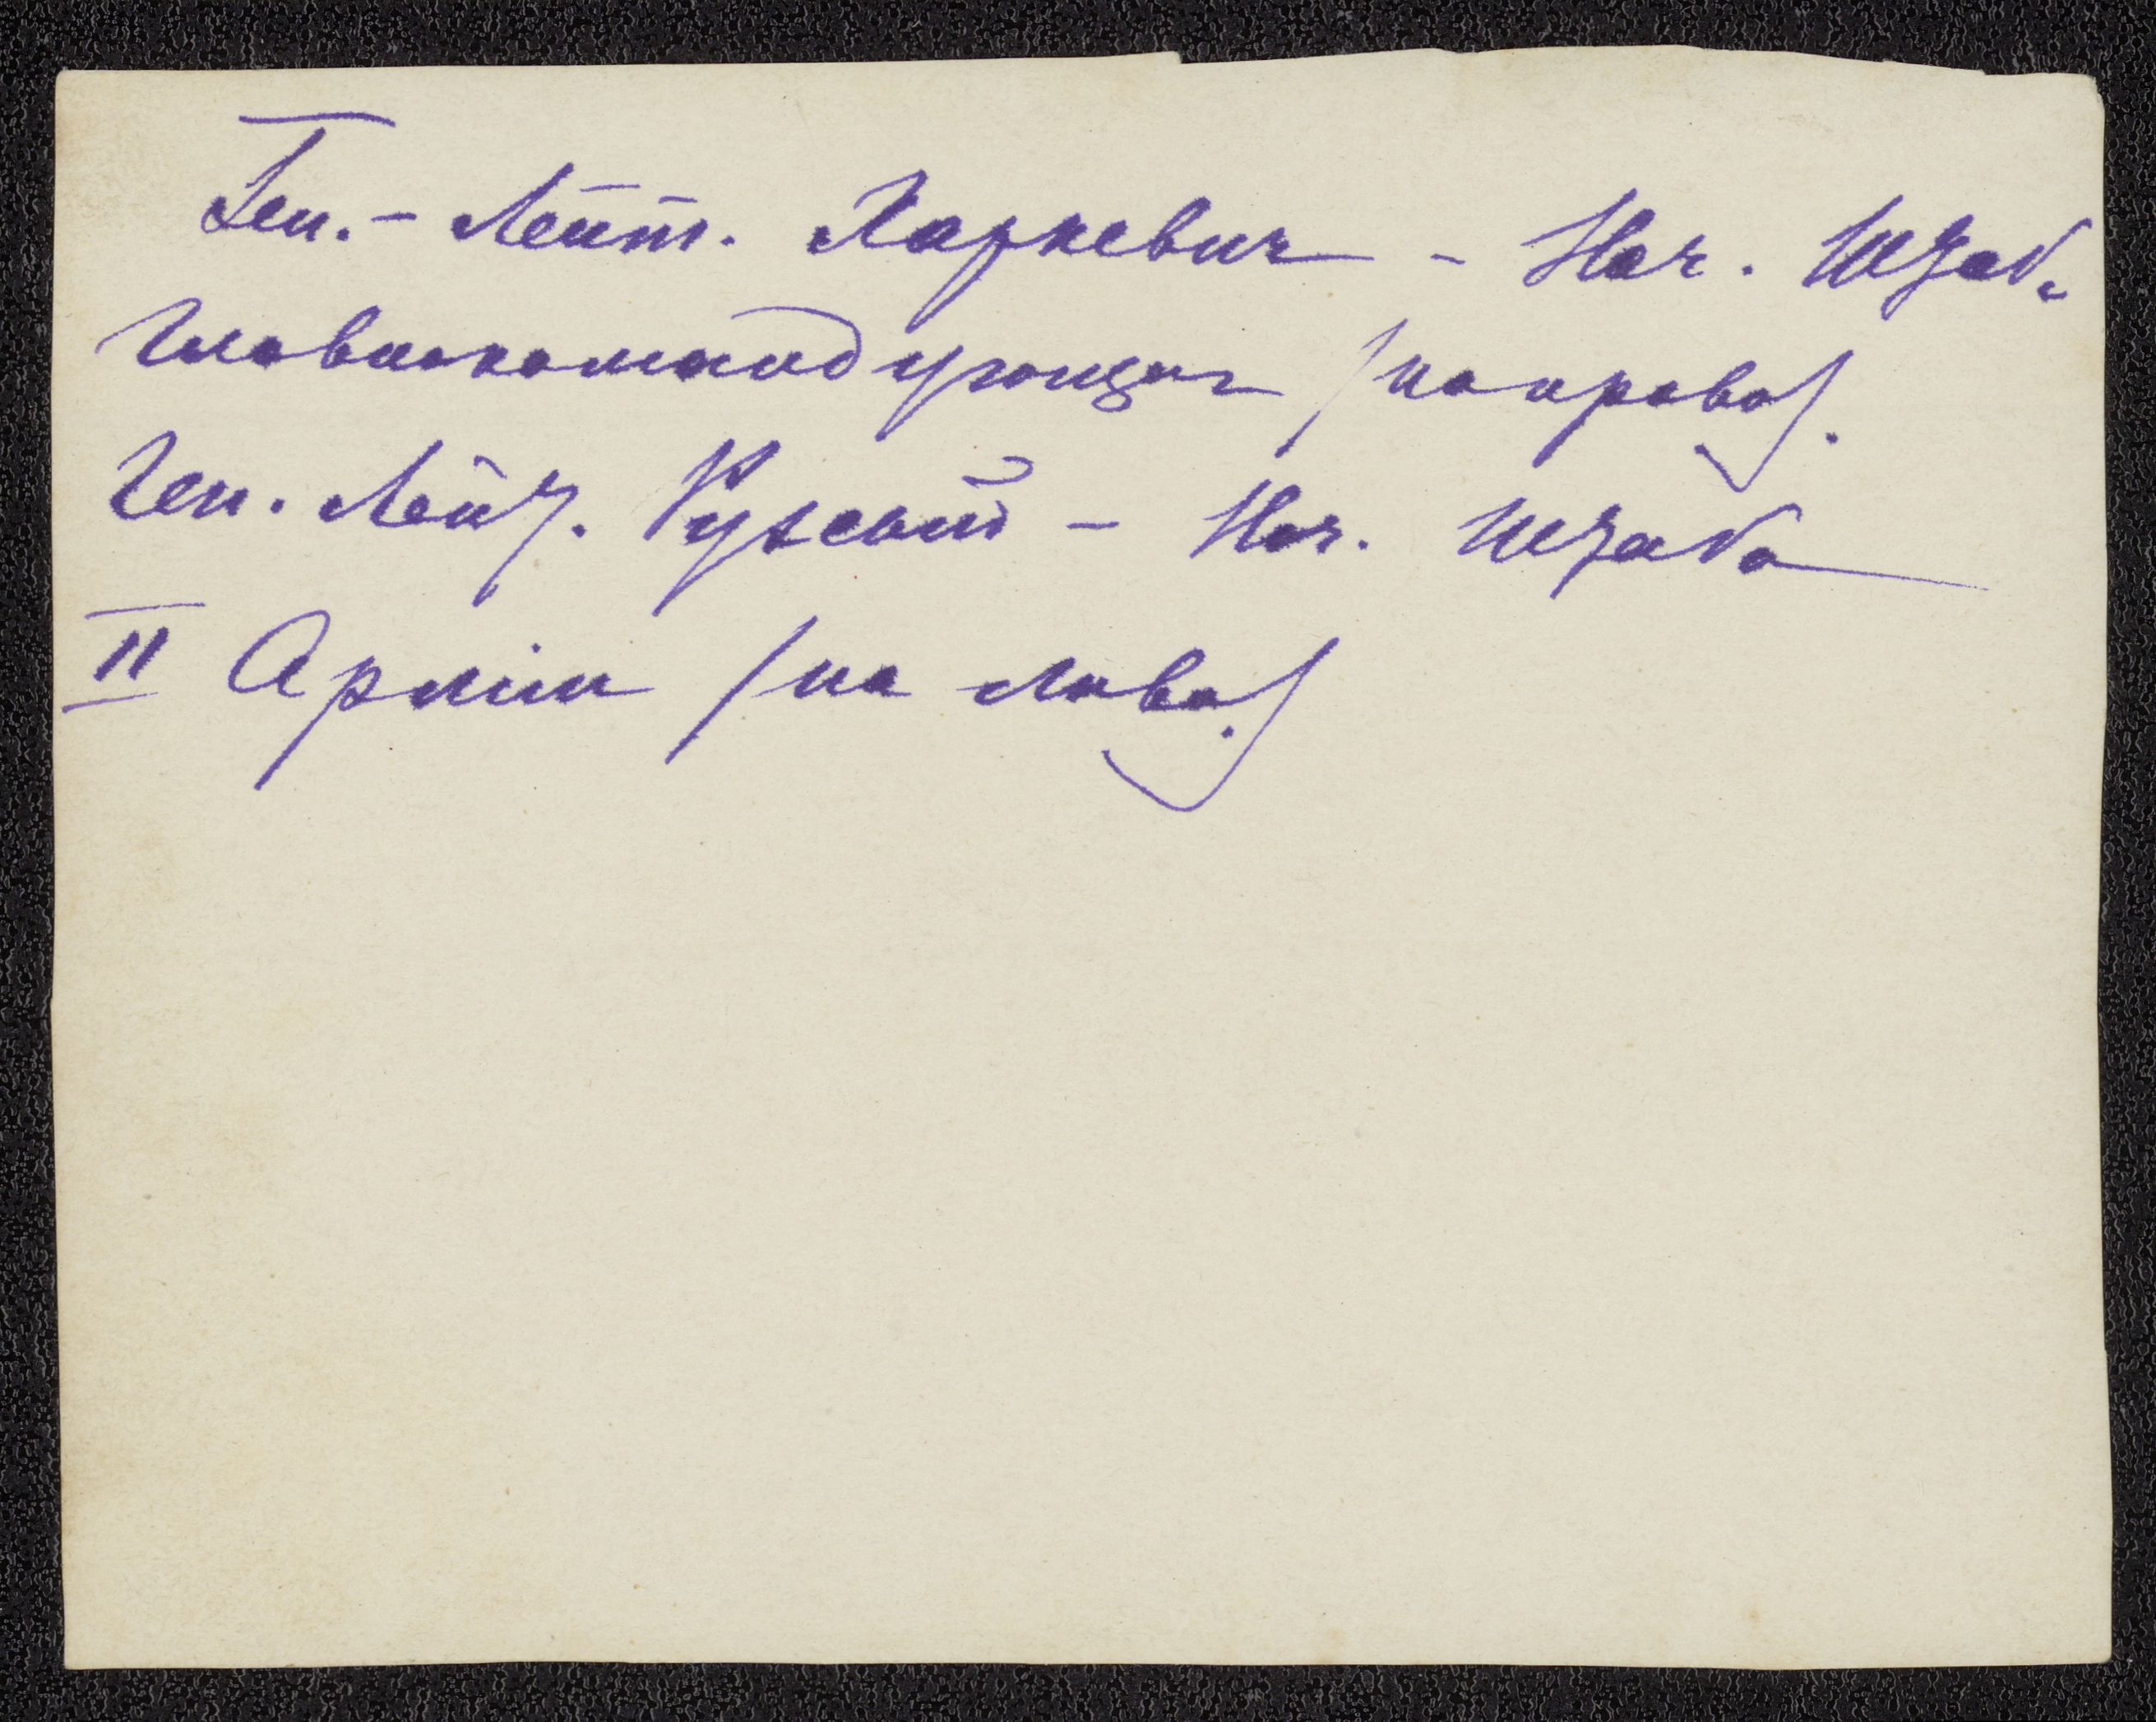 Ген.- Лейт. Харкевич - Нач. Штаб.
Главнокомандующаг /направо/.
Ген. Лейт. Рузский - Нач. Штаба
II Армiи /на лево/.